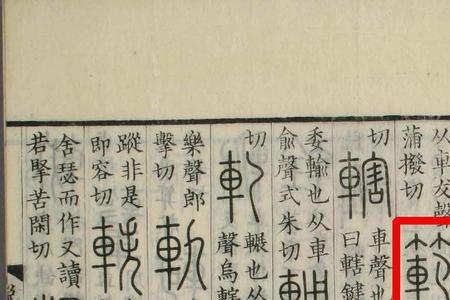 从車友聲
蒲撥切
範
切
轄
車聲也
曰轄鍵
委輸也从車
俞聲式朱切
切
軋
輾也从
聲烏轄
樂聲郎
擊切
軌
蹤非是
即容切
軼
舍瑟而作又讀
若掔苦閑切